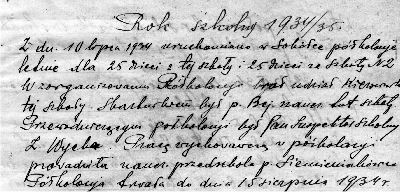 Rok szkolny 1934/35.
Z dn. 10 lipca 1934 uruchomiono w Sobótce półkolonje
letnie dla 25 dzieci z tej szkoły i 25 dzieci ze szkoły N2
W zorganizowaniu Półkolonji brał udział Kierownik
tej szkoły. Skarbnikiem był p. Bej naucz. tut. szkoły
Przewodniczącym półkolonji był Pan Inspektor Szkolny
Z. Wycka. Pracę wychowawczą w półkolonji
prowadziła naucz. przedszkola p.
Półkolonja trwała do dnia 15 sierpnia 1934 r.